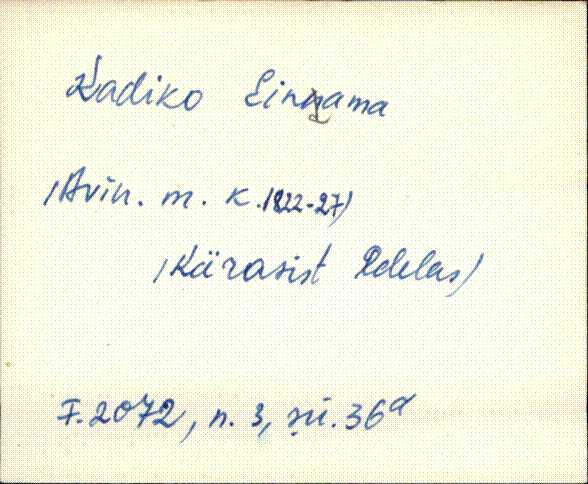 Kadiko Einama
/Avin. m. K. 1822-27/
/Kärasist Edelas/
F. 2072, n. 3, sü. 36a